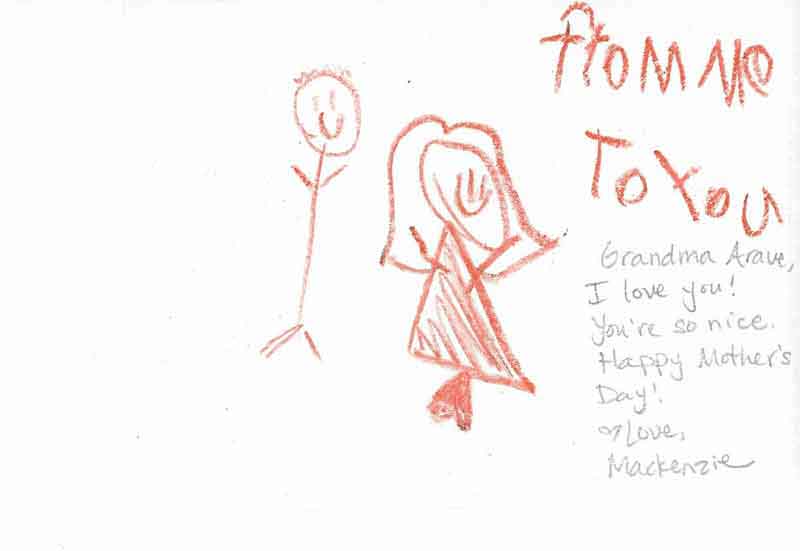 from me
To You
Grandma Arave,
I love you!
You're so nice.
Happy Mother's
Day!
♡Love,
Mackenzie